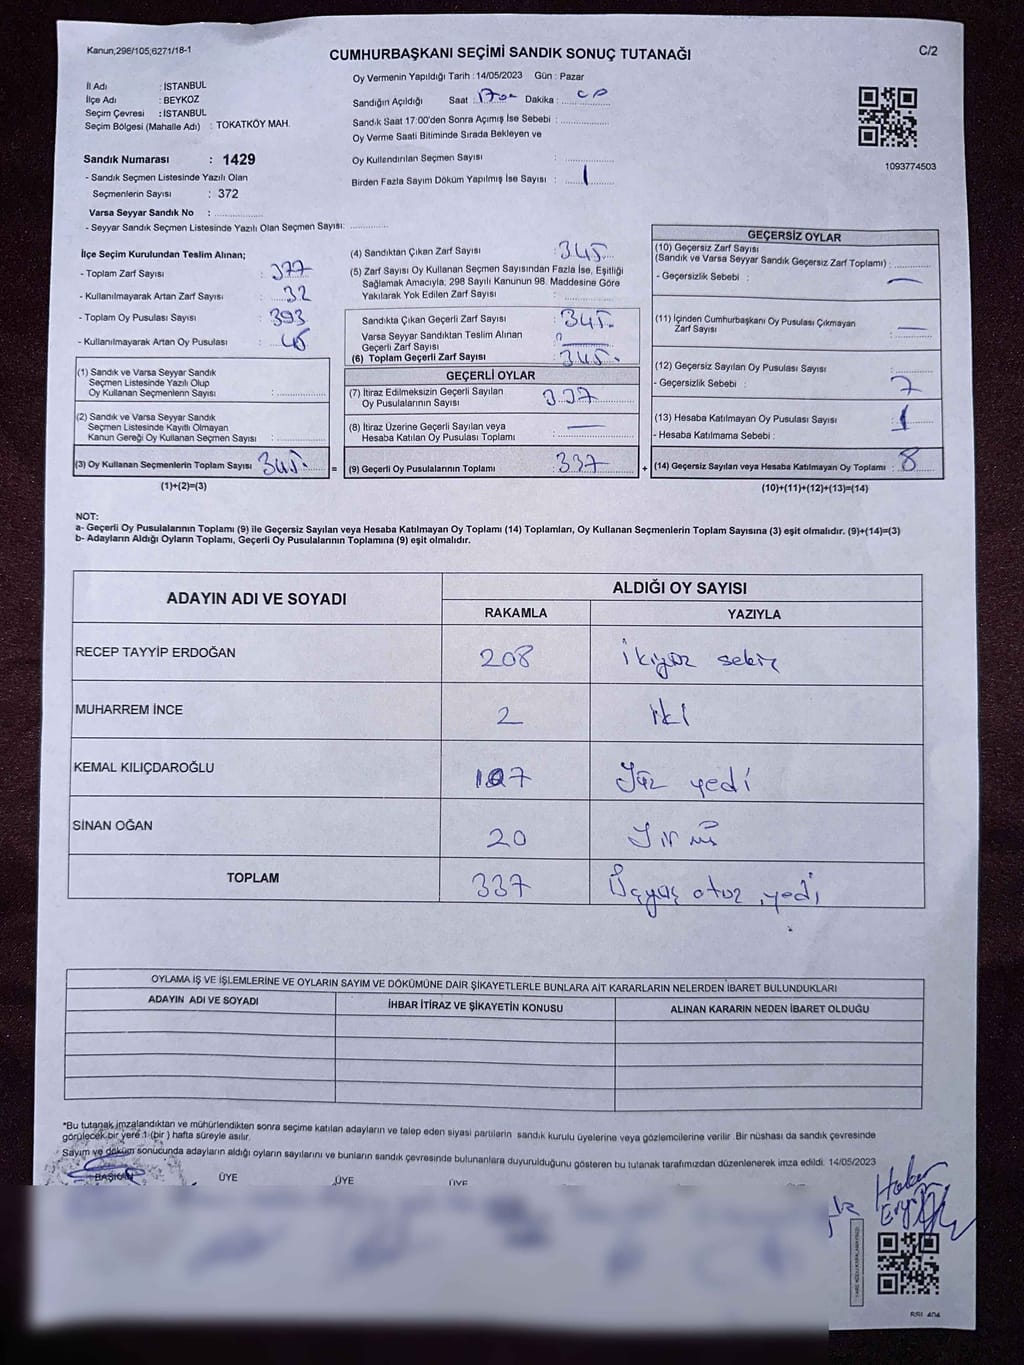 Kanun;298/105,6271/18-1
CUMHURBAŞKANI SEÇİMİ SANDIK SONUÇ TUTANAĞI
C/2
İl Adı : İSTANBUL
İlçe Adı : BEYKOZ
Seçim Çevresi : İSTANBUL
Seçim Bölgesi (Mahalle Adı) : TOKATKÖY MAH.
Oy Vermenin Yapıldığı Tarih : 14/05/2023 Gün : Pazar
Sandığın Açıldığı Saat : 17oo Dakika :
Sandık Saat 17:00'den Sonra Açımış İse Sebebi :
Oy Verme Saati Bitiminde Sırada Bekleyen ve
Oy Kullendırılan Seçmen Sayısı :
Birden Fazla Sayım Döküm Yapılmış İse Sayısı : 1
1093774503
Sandık Numarası : 1429
- Sandık Seçmen Listesinde Yazılı Olan
Seçmenlerin Sayısı : 372
Varsa Seyyar Sandık No :
- Seyyar Sandık Seçmen Listesinde Yazılı Olan Seçmen Sayısı:
İlçe Seçim Kurulundan Teslim Alınan;
- Toplam Zarf Sayısı : 377
- Kullanılmayarak Artan Zarf Sayısı : 32
- Toplam Oy Pusulası Sayısı : 393
- Kullanılmayarak Artan Oy Pusulası : 48
(1) Sandık ve Varsa Seyyar Sandık
Seçmen Listesinde Yazılı Olup
Oy Kullanan Seçmenlerin Sayısı :
(2) Sandık ve Varsa Seyyar Sandık
Seçmen Listesinde Kayıtlı Olmayan
Kanun Gereği Oy Kullanan Seçmen Sayısı :
(3) Oy Kullanan Seçmenlerin Toplam Sayısı : 345.
(1)+(2)=(3)
(4) Sandıktan Çıkan Zarf Sayısı : 345.
(5) Zarf Sayısı Oy Kullanan Seçmen Sayısından Fazla İse, Eşitliği
Sağlamak Amacıyla, 298 Sayılı Kanunun 98. Maddesine Göre
Yakılarak Yok Edilen Zarf Sayısı :
Sandıkta Çıkan Geçerli Zarf Sayısı : 345.
Varsa Seyyar Sandıktan Teslim Alınan
Geçerli Zarf Sayısı :
(6) Toplam Geçerli Zarf Sayısı : 345.
GEÇERLİ OYLAR
(7) İtiraz Edilmeksizin Geçerli Sayılan
Oy Pusulalarının Sayısı : 337
(8) İtiraz Üzerine Geçerli Sayılan veya
Hesaba Katılan Oy Pusulası Toplamı : —
= (9) Geçerli Oy Pusulalarının Toplamı : 337 +
GEÇERSİZ OYLAR
(10) Geçersiz Zarf Sayısı
(Sandık ve Varsa Seyyar Sandık Geçersiz Zarf Toplamı) :
- Geçersizlik Sebebi : —
(11) İçinden Cumhurbaşkanı Oy Pusulası Çıkmayan
Zarf Sayısı : —
(12) Geçersiz Sayılan Oy Pusulası Sayısı :
- Geçersizlik Sebebi : 7
(13) Hesaba Katılmayan Oy Pusulası Sayısı : 1
- Hesaba Katılmama Sebebi :
(14) Geçersiz Sayılan veya Hesaba Katılmayan Oy Toplamı : 8
(10)+(11)+(12)+(13)=(14)
NOT:
a- Geçerli Oy Pusulalarının Toplamı (9) ile Geçersiz Sayılan veya Hesaba Katılmayan Oy Toplamı (14) Toplamları, Oy Kullanan Seçmenlerin Toplam Sayısına (3) eşit olmalıdır. (9)+(14)=(3)
b- Adayların Aldığı Oyların Toplamı, Geçerli Oy Pusulalarının Toplamına (9) eşit olmalıdır.
ADAYIN ADI VE SOYADI
ALDIĞI OY SAYISI
RAKAMLA YAZIYLA
RECEP TAYYİP ERDOĞAN 208 İkiyüz sekiz
MUHARREM İNCE 2 iki
KEMAL KILIÇDAROĞLU 107 Yüz yedi
SİNAN OĞAN 20 Yirmi
TOPLAM 337 Üçyüz otuz yedi
OYLAMA İŞ VE İŞLEMLERİNE VE OYLARIN SAYIM VE DÖKÜMÜNE DAİR ŞİKAYETLERLE BUNLARA AİT KARARLARIN NELERDEN İBARET BULUNDUKLARI
ADAYIN ADI VE SOYADI İHBAR İTİRAZ VE ŞİKAYETİN KONUSU ALINAN KARARIN NEDEN İBARET OLDUĞU
*Bu tutanak imzalandıktan ve mühürlendikten sonra seçime katılan adayların ve talep eden siyasi partilerin sandık kurulu üyelerine veya gözlemcilerine verilir. Bir nüshası da sandık çevresinde
görülecek bir yere 1 (bir ) hafta süreyle asılır.
Sayım ve döküm sonucunda adayların aldığı oyların sayılarını ve bunların sandık çevresinde bulunanlara duyurulduğunu gösteren bu tutanak tarafımızdan düzenlenerek imza edildi. 14/05/2023
BAŞKAN ÜYE ÜYE ÜYE
Hakan